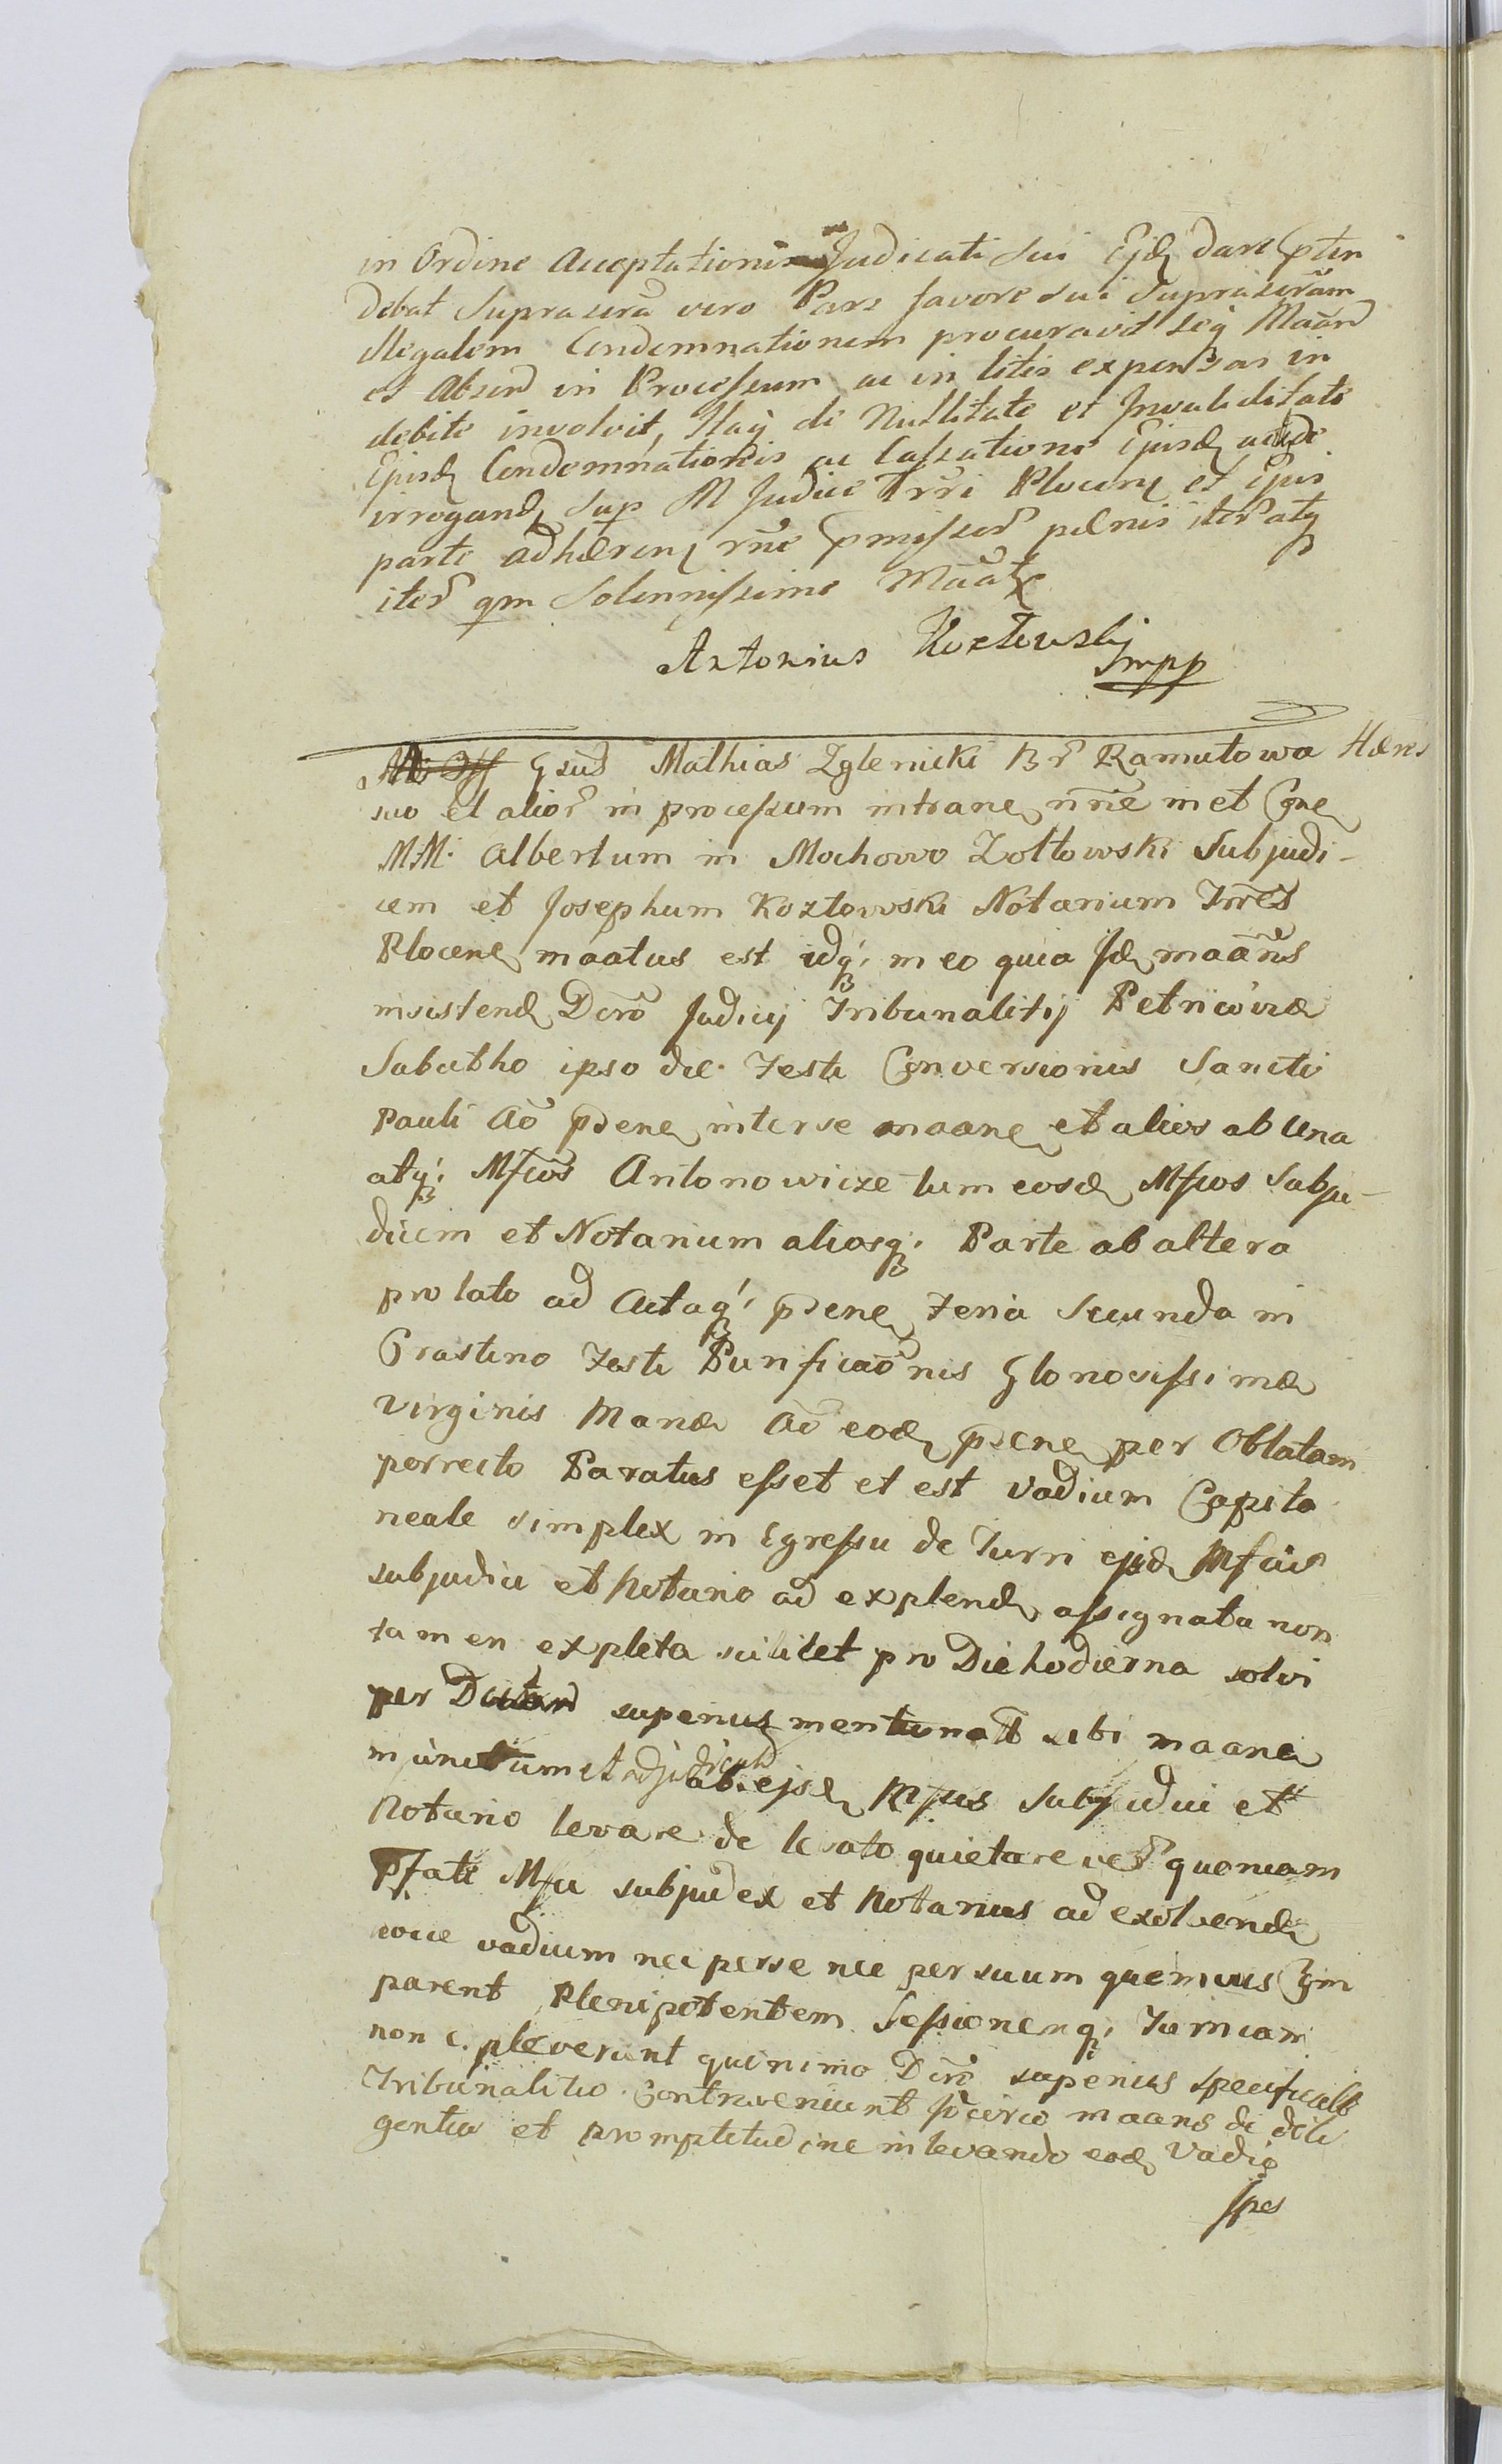 in Ordine Acceptationis Judicati sui Ejd dare pten
debat Suprascrã vero Pars favore sui Suprascrãm
Illegalem Condemnationem procuravit seq Maand
et Absend in Processum ac in litis expensas in
debite involvit, Itaq de Nullitate et Invaliditate
Ejusd Condemnationis ac Cassatione Ejusd
irrogand sup M Judice Trri Plocen et Ejus
parte adhæren rne pmissor pænis iter atq
iter qm Solennissime Maatx
Antonius Kozłowski
mpp
Gsus Mathias Zglenicki Br Ramutowa Hæres
suo et alior in processum intrane nne met Cne
MM. Albertum in Mochowo Zołtowski Subjudi-
cem et Josephum Kozłowski Notarium Trres
Plocene maatus est idq; in eo quia Jd maans
insistend Dcro Judicij Tribunalitij Petricoviæ
Sabatho ipso die Festi Conversionis Sancti
Pauli Ao psene inter se maane et alios ab una
atq; Mfcos Antonowicze tum eosd Mfcos Subju-
dicem et Notarium aliosq; Parte ab altera
prolato ad Actaq; psene Feria Secunda in
Crastino Festi Purificaonis Gloriosissimæ
Virginis Mariæ Ao eod psene per Oblatam
porrecto Paratus esset et est Vadium Capita
neale simplex in Egressu de Turri ejsd Mfcis
subjudici et Notario ad explend assignata non
tamen expleta scilicet pro Die hodierna solvi
per superius mentionatt sibi maane
injunctum et adjudicatd ab ejsd Mfcis Subjudici et
Notario levare de levato quietare ver quoniam
Pfati Mfci subjudex et Notarius ad exolvend
vadium nec per se nec per suum quemvis Cm
parent Plenipotentem Sessionemq; Turriam
non expleverunt quinimo Dcro superius specificatt
Tribunalitio Contraveniunt Jocirco maans de dili
gentia et promptitudine in levando eod Vadio
spes